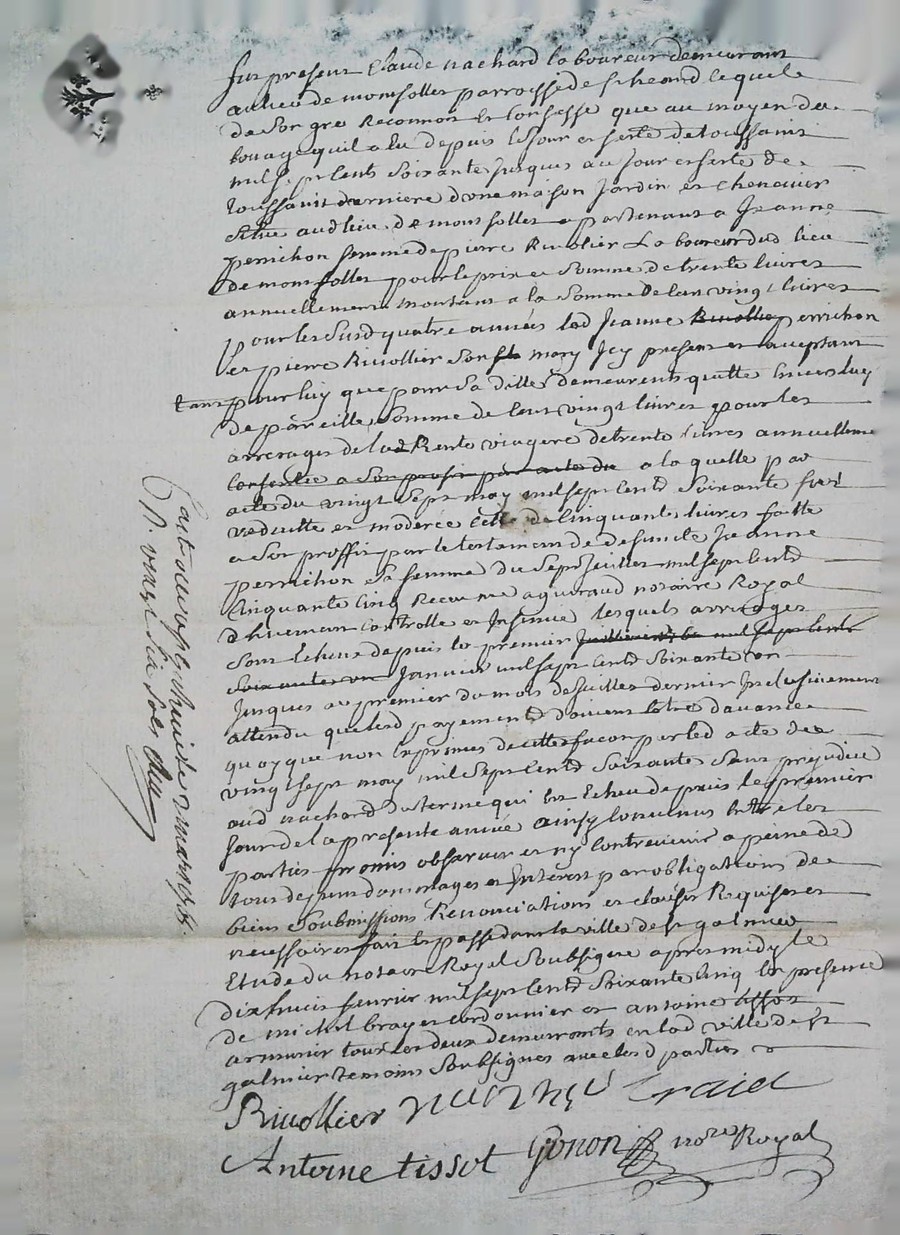 fut present Claude nachard laboureur demeurant
au lieu de montsollet parroisse de st heand lequel
de son gre Reconnoit et confesse que au moyen du
louage quil a eu depuis le jour et feste de toussaint
mil sept cents soixante jusques au jour et feste de
toussaint derniere d'une maison jardin et chenevier
situe aud lieu de montsollet apartenant a Jeanne
perrichon femme de pierre Rivolier Laboureur dud lieu
de montsollet pour le prix et somme de trente livres
annuellement montant a la somme de cent vingt livres
pour lesd quatre années lad Jeanne Rivollier perrichon
et pierre Rivollier son mary Icy present et acceptant
tant pour luy que pour sa ditte demeurent quitte envers luy
de pareille somme de cent vingt livres pour les
arrerages de lad Rente viagere de trente livres annuelleme
consentie a son profit par acte du a la quelle par
acte du vingt sept may mil sept cents soixante fust
reduitte et moderée celle de cinquante livres faitte
a son proffit par le testament de defuncte Jeanne
perrichon sa femme du sept juillet mil sept cents
cinquante cinq Receu me aguiraud notaire Royal
controlle et Insinué lesquels arrerages
sont Echeus depuis le premier
soixante un Janvier mil sept cents soixante un
jusques au premier du mois de juillet dernier Inclusivement
attendu que lesd payements doivent estre d'avance
quoyque non Exprimés de cette facon par led acte du
vingt sept may mil sept cents soixante sans prejudice
aud nachard du terme qui est Echeu depuis le premier
jour de la presente année ainsy convenus Entre les
parties promis observer et ny contrevenir a peine de
tous depens dommages et Interest par obligations de
biens Soubmissions Renonciations et clauses Requises et
necessaires fait et passé dans la ville de st galmier
Etude du notaire Royal Soubsigné apres midy le
dix huit fevrier mil sept cents soixante cinq En presence
de michel brayet cordonnier et antoine tissot
armurier tous les deux demeurants en lad ville de st
galmier temoins Soubsignés avec lesd parties
Rivollier
Antoine tissot Gonon nore Royal